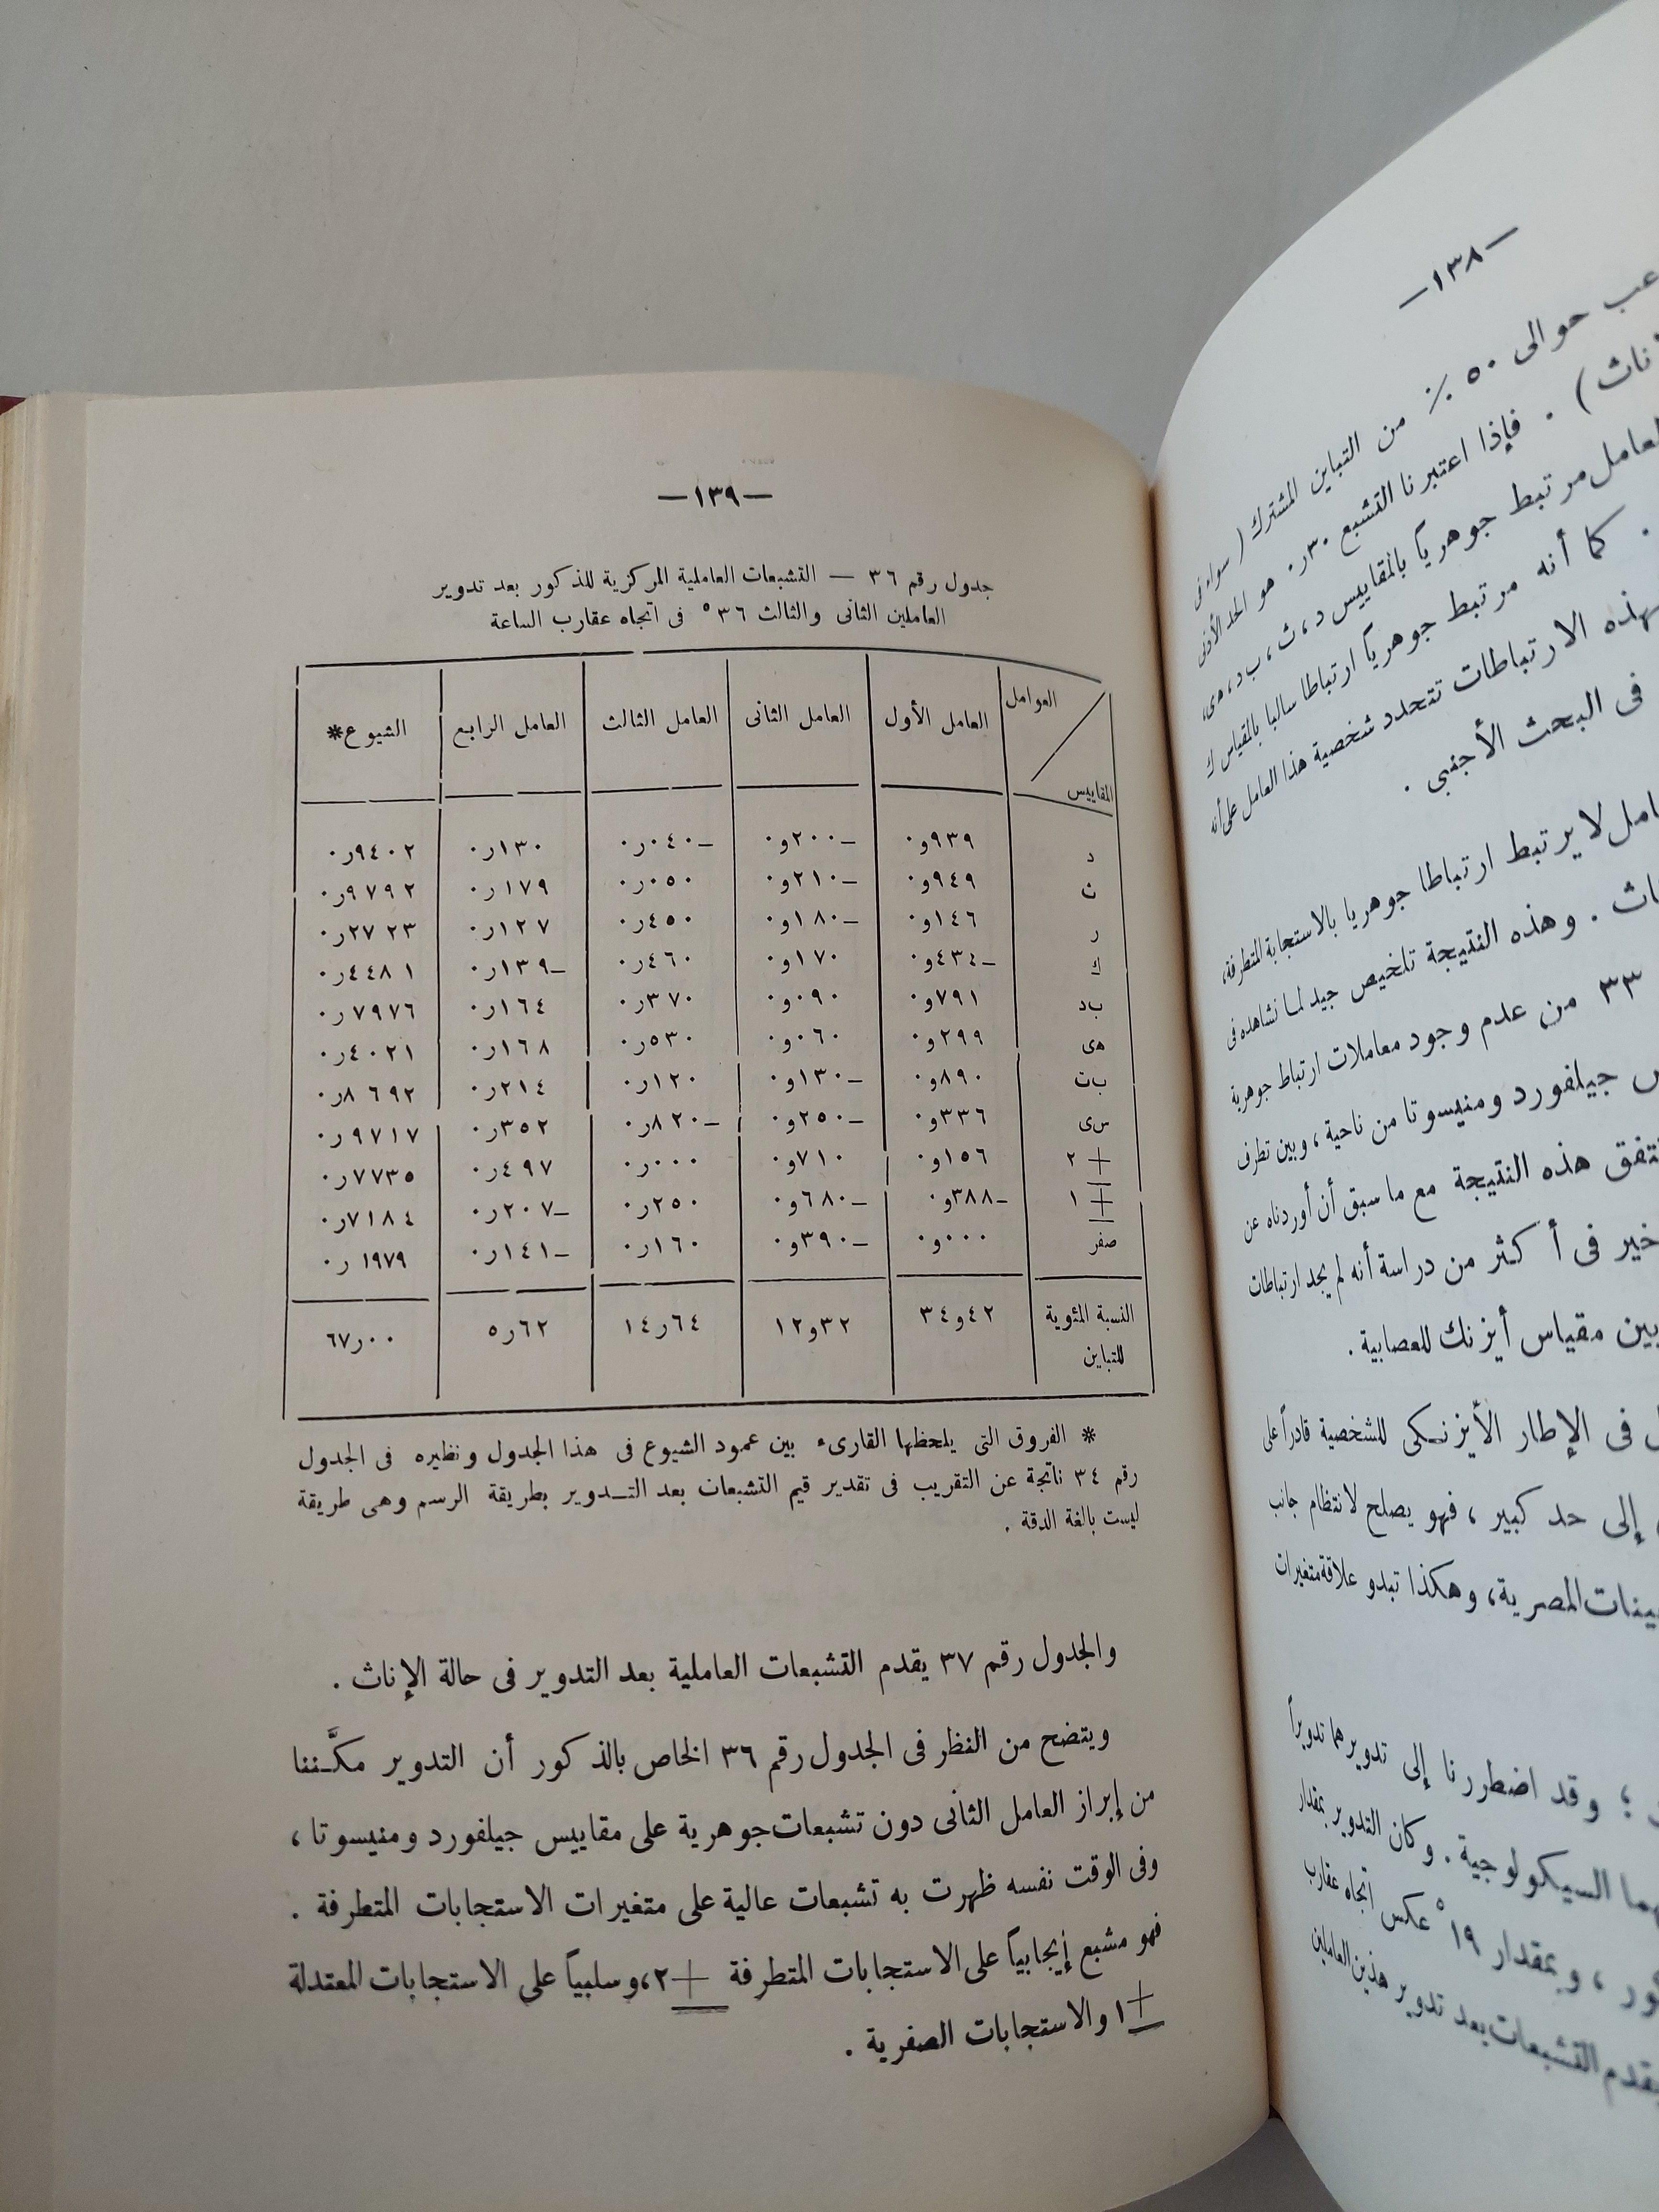 —١٣٨—
حوالى ٥٠ ٪ من التباين المشترك ( سواء فى
. فإذا اعتبرنا التشبع ٣٠ر٠ هو الحد الأدنى
مرتبط جوهرياً بالمقاييس د ، ث ، ب د ، هى ،
. كما أنه مرتبط جوهرياً ارتباطا سالبا بالمقياس ك
بهذه الارتباطات تتحدد شخصية هذا العامل على أنه
فى البحث الأجنبى .
لا يرتبط ارتباطا جوهريا بالاستجابة المتطرفة ،
. وهذه النتيجة تلخيص جيد لما نشاهده فى
٣٣ من عدم وجود معاملات ارتباط جوهرية
جيلفورد ومنيسوتا من ناحية ، وبين تطرف
تتفق هذه النتيجة مع ما سبق أن أوردناه عن
فى أكثر من دراسة أنه لم يجد ارتباطات
بين مقياس أيزنك للعصابية .
فى الإطار الأيزنكى للشخصية قادراً على
إلى حد كبير ، فهو يصلح لانتظام جانب
المصرية ، وهكذا تبدو علاقة متغيرات
؛ وقد اضطررنا إلى تدويرهما تدويراً
السيكولوجية . وكان التدوير بمقدار
، وبمقدار ١٩° عكس اتجاه عقارب
يقدم التشبعات بعد تدوير هذين العاملين
—١٣٩—
جدول رقم ٣٦ — التشبعات العاملية المركزية للذكور بعد تدوير
العاملين الثانى والثالث ٣٦° فى اتجاه عقارب الساعة
العوامل
المقاييس العامل الأول العامل الثانى العامل الثالث العامل الرابع الشيوع*
د ٩٣٩و٠ —٢٠٠و٠ —٠٤٠ر٠ ١٣٠ر٠ ٩٤٠٢ر٠
ث ٩٤٩و٠ —٢١٠و٠ ٠٥٠ر٠ ١٧٩ر٠ ٩٧٩٢ر٠
ر ١٤٦و٠ —١٨٠و٠ ٤٥٠ر٠ ١٢٧ر٠ ٢٧٢٣ر٠
ك —٤٣٤و٠ ١٧٠و٠ ٤٦٠ر٠ —١٣٩ر٠ ٤٤٨١ر٠
ب د ٧٩١و٠ ٠٩٠و٠ ٣٧٠ر٠ ١٦٤ر٠ ٧٩٧٦ر٠
هى ٢٩٩و٠ ٠٦٠و٠ ٥٣٠ر٠ ١٦٨ر٠ ٤٠٢١ر٠
ب ث ٨٩٠و٠ —١٣٠و٠ ١٢٠ر٠ ٢١٤ر٠ ٨٦٩٢ر٠
س ى ٣٣٦و٠ —٢٥٠و٠ —٨٢٠ر٠ ٣٥٢ر٠ ٩٧١٧ر٠
± ٢ ١٥٦و٠ ٧١٠و٠ ٠٠٠ر٠ ٤٩٧ر٠ ٧٧٣٥ر٠
± ١ —٣٨٨و٠ —٦٨٠و٠ ٢٥٠ر٠ —٢٠٧ر٠ ٧١٨٤ر٠
صفر ٠٠٠و٠ —٣٩٠و٠ ١٦٠ر٠ —١٤١ر٠ ١٩٧٩ر٠
النسبة المئوية ٤٢و٣٤ ٣٢و١٢ ٦٤ر١٤ ٦٢ر٥ ٠٠ر٦٧
للتباين
* الفروق التى يلحظها القارىء بين عمود الشيوع فى هذا الجدول ونظيره فى الجدول
رقم ٣٤ ناتجة عن التقريب فى تقدير قيم التشبعات بعد التـدوير بطريقة الرسم وهى طريقة
ليست بالغة الدقة .
والجدول رقم ٣٧ يقدم التشبعات العاملية بعد التدوير فى حالة الإناث .
ويتضح من النظر فى الجدول رقم ٣٦ الخاص بالذكور أن التدوير مكَّـننا
من إبراز العامل الثانى دون تشبعات جوهرية على مقاييس جيلفورد ومنيسوتا ،
وفى الوقت نفسه ظهرت به تشبعات عالية على متغيرات الاستجابات المتطرفة .
فهو مشبع إيجابياً على الاستجابات المتطرفة ± ٢ ، وسلبياً على الاستجابات المعتدلة
± ١ والاستجابات الصفرية .